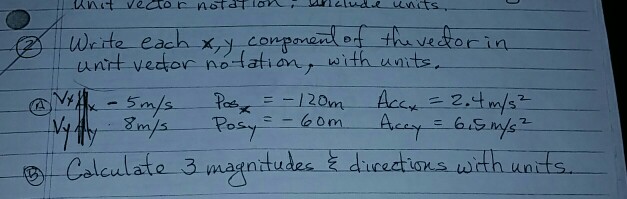 unit vector notation; include units.
② Write each x,y component of the vector in
unit vector notation, with units.
Ⓐ Vx - 5m/s Posx = -120m Accx = 2.4m/s²
Vy - 8m/s Posy = -60m Accy = 6.5m/s²
Ⓑ Calculate 3 magnitudes & directions with units.